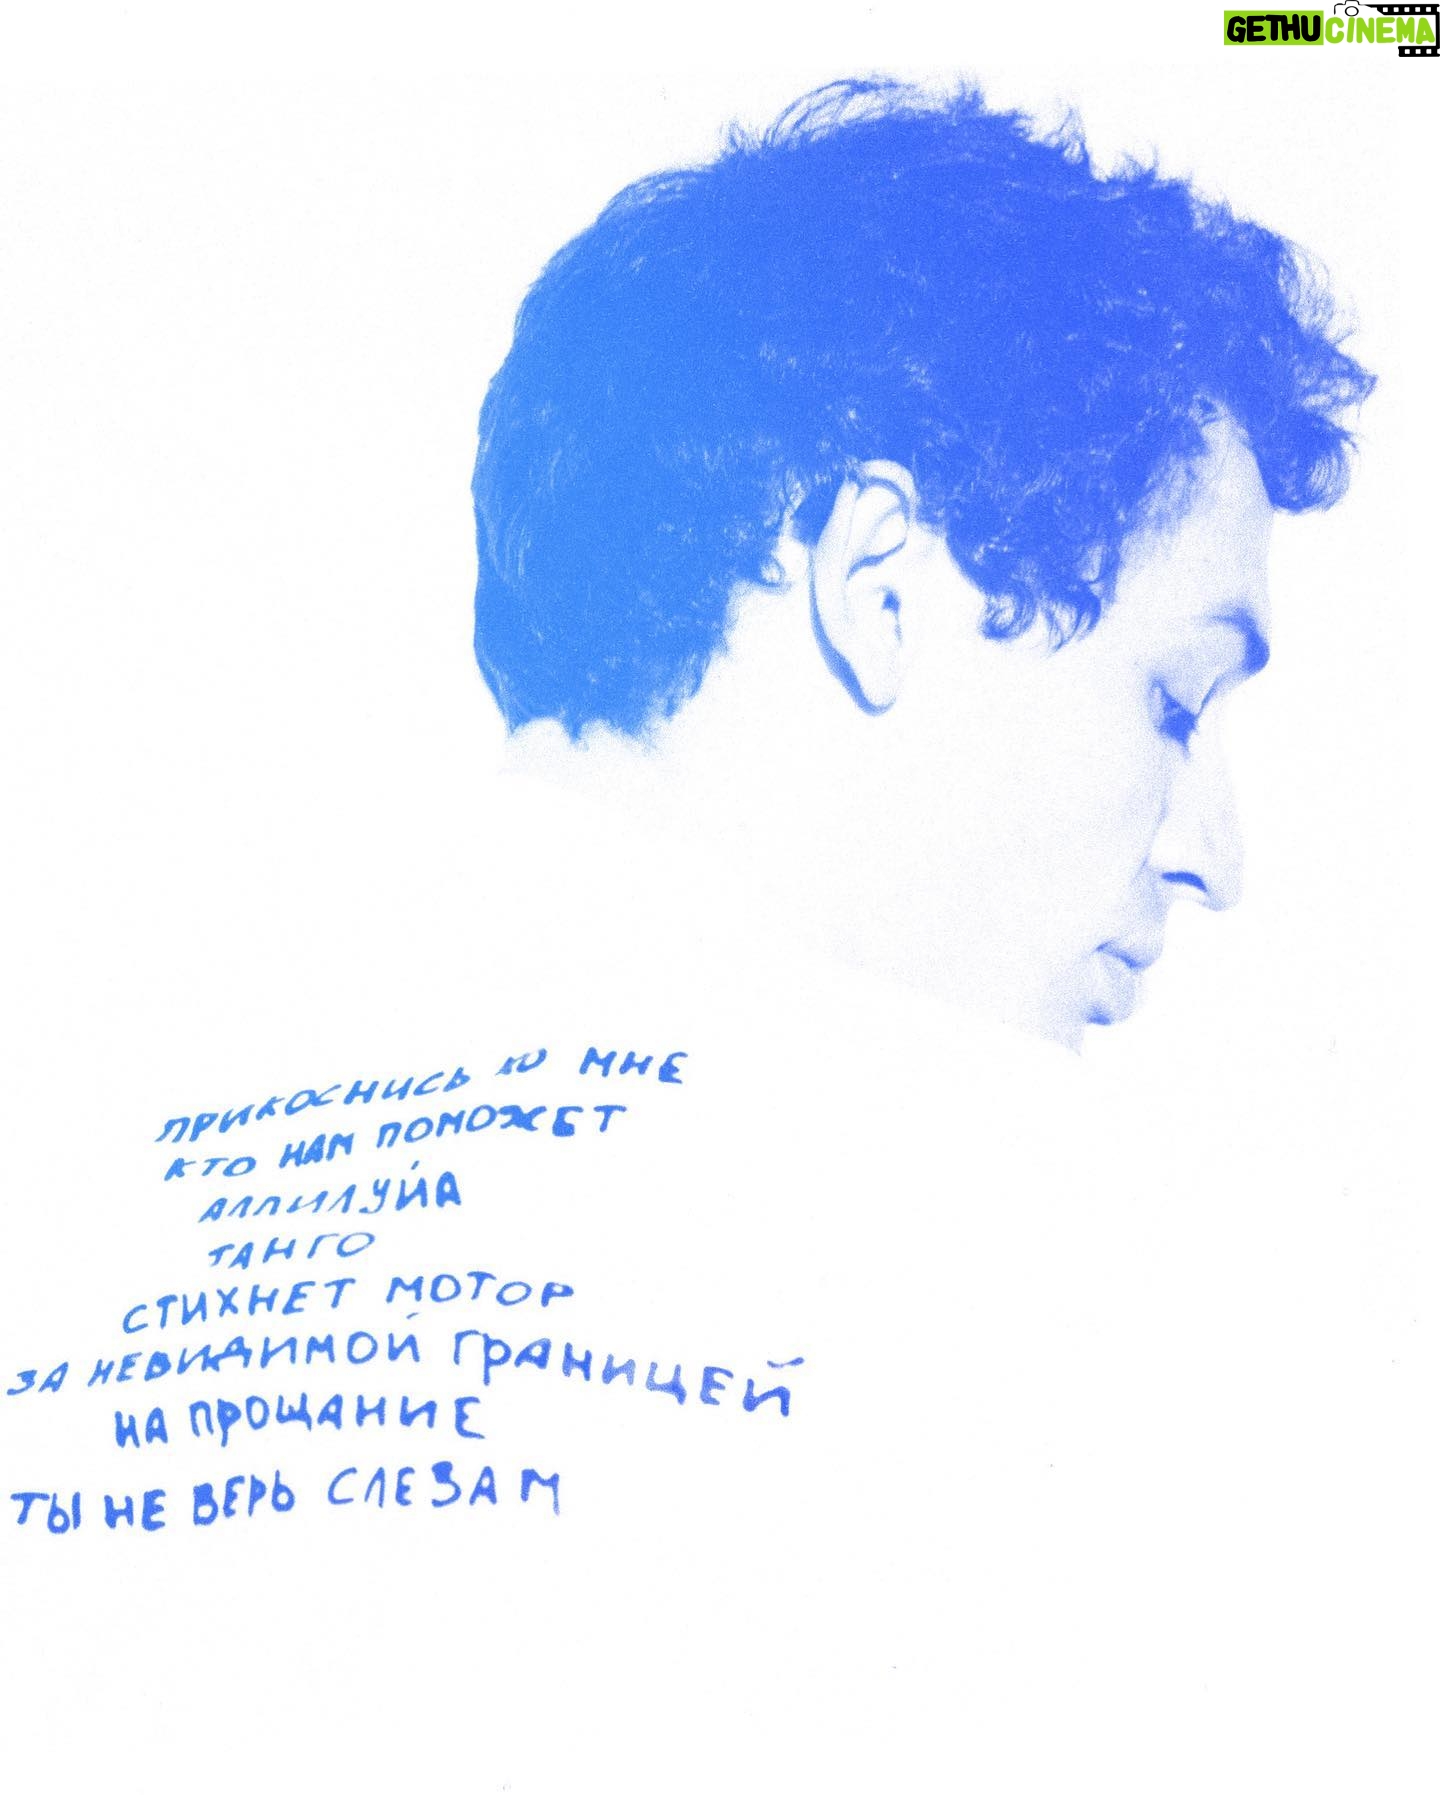 GETHUCINEMA
ПРИКОСНИСЬ КО МНЕ
КТО НАМ ПОМОЖЕТ
АЛЛИЛУЙА
ТАНГО
СТИХНЕТ МОТОР
ЗА НЕВИДИМОЙ ГРАНИЦЕЙ
НА ПРОЩАНИЕ
ТЫ НЕ ВЕРЬ СЛЕЗАМ